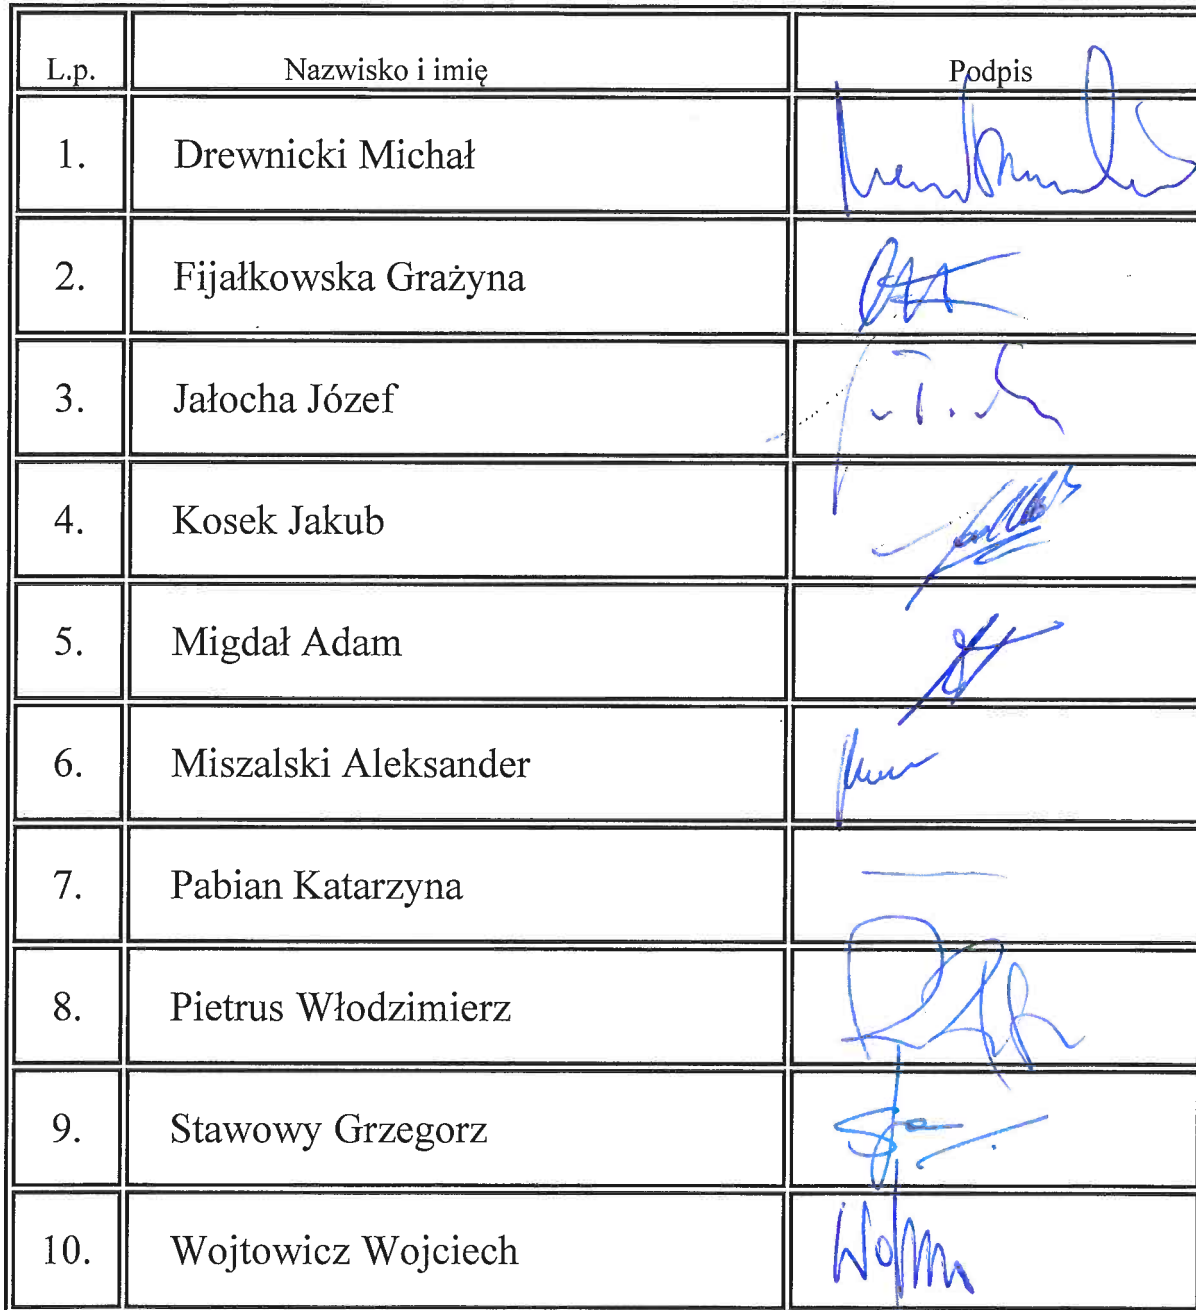 L.p. Nazwisko i imię Podpis
1. Drewnicki Michał
2. Fijałkowska Grażyna
3. Jałocha Józef
4. Kosek Jakub
5. Migdał Adam
6. Miszalski Aleksander
7. Pabian Katarzyna —
8. Pietrus Włodzimierz
9. Stawowy Grzegorz
10. Wojtowicz Wojciech